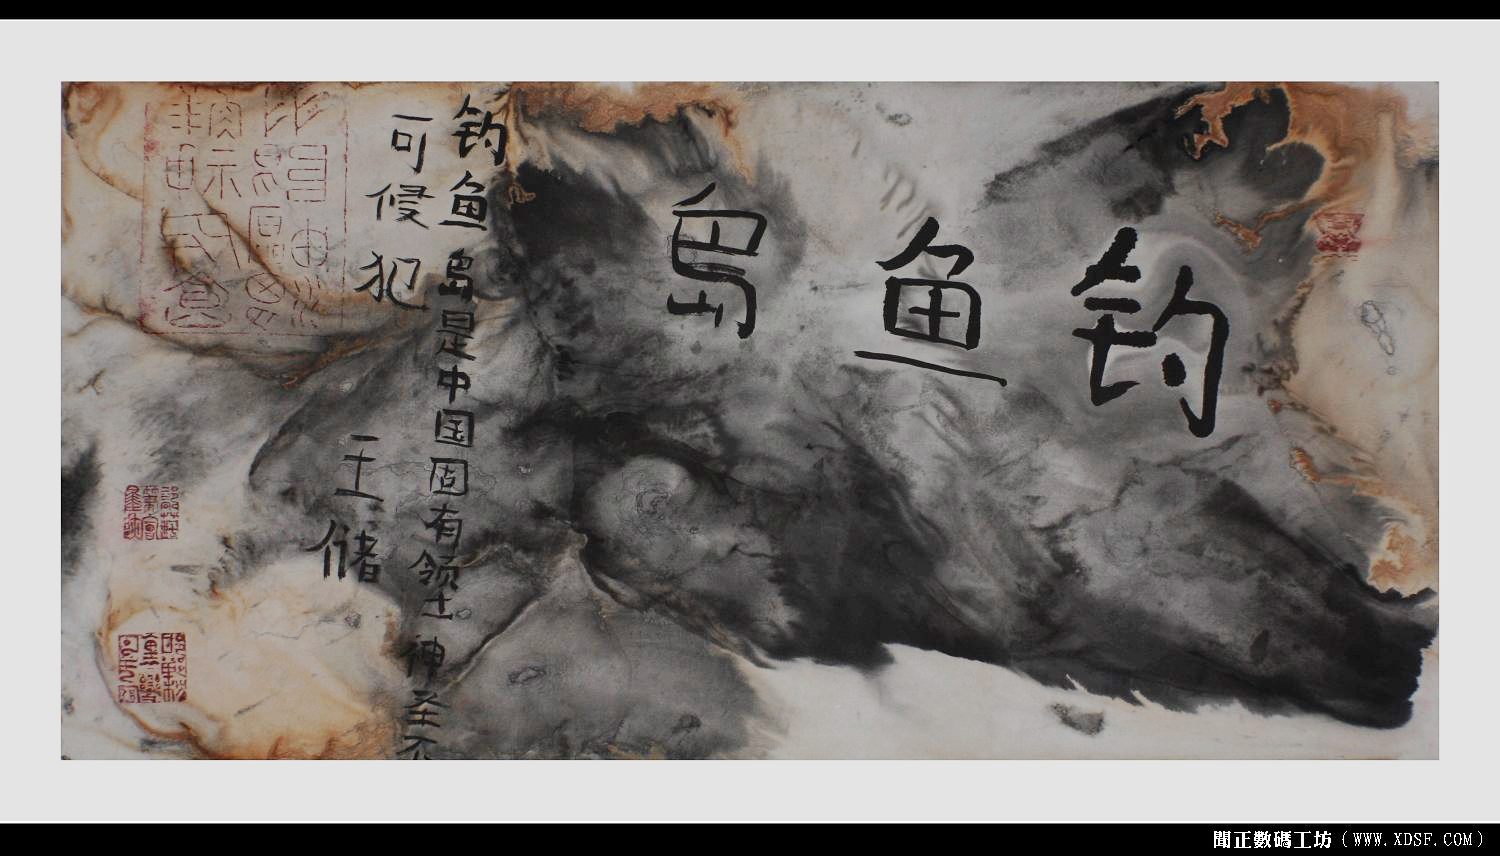 钓鱼岛
钓鱼岛是中国固有领土神圣不
可侵犯
王储
聞正數碼工坊（WWW.XDSF.COM）